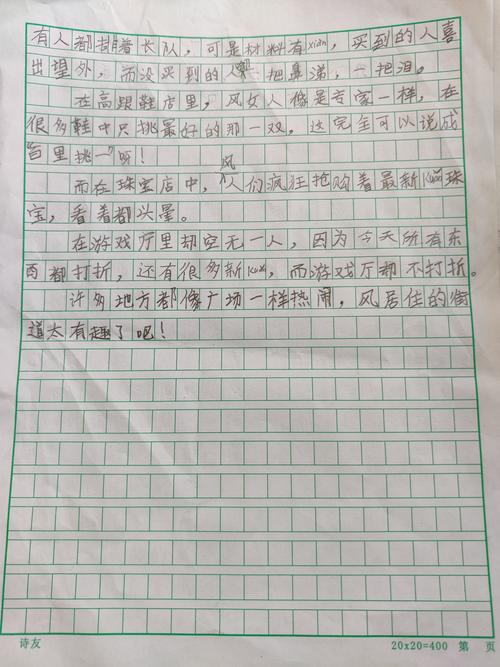 有人都排着长队，可是材料有xiàn，买到的人喜
出望外，而没买到的人却一把鼻涕，一把泪。
在高跟鞋店里，风女人像是专家一样，在
很多鞋中只挑最好的那一双。这完全可以说成
“百里挑一”呀！
而在珠宝店中，风人们疯狂抢购着最新kuǎn珠
宝，看着都头晕。
在游戏厅里却空无一人，因为今天所有东
西都打折，还有很多新kuǎn，而游戏厅却不打折。
许多地方都像广场一样热闹，风居住的街
道太有趣了吧！
诗友
20x20=400 第 页